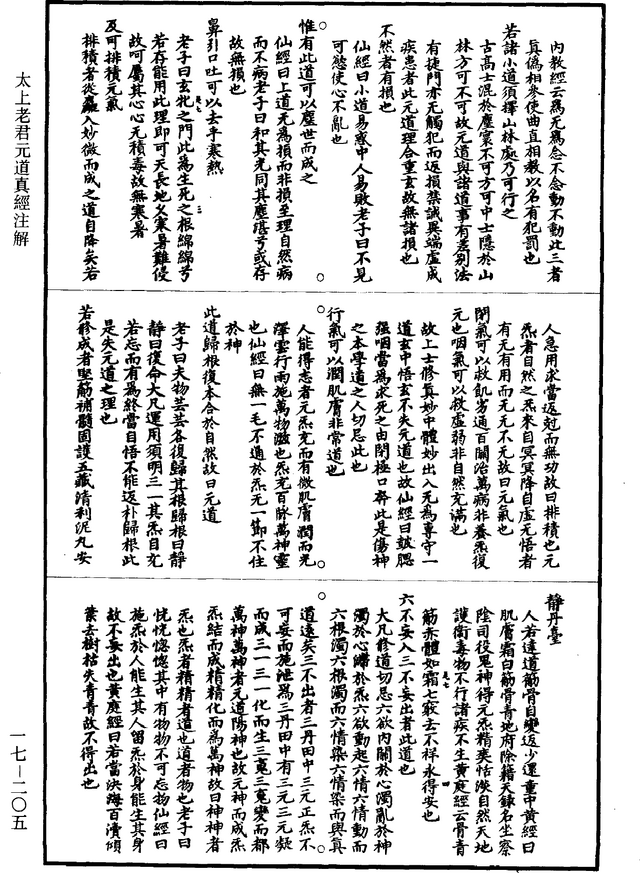 內教經云爲无爲念不念動不動此三者
真僞相參使曲直相教以名有犯罰也
若諸小道須擇山林處乃可行之
古高士混於塵寰不可方可中士隱於山
林方可不可故元道與諸道事有差別法
有捷門亦无觸犯而返損禁誡異端虛成
疾患者此元道理合重玄故無諸損也
不然者有損也
仙經曰小道易惑中人易敗老子曰不見
可慾使心不亂也
惟有此道可以塵世而成之
仙經曰上道无爲損而非損至理自然病
而不病老子曰和其光同其塵湛兮或存
故無損也
鼻引口吐可以去乎寒熱
老子曰玄牝之門此爲生死之根綿綿兮
若存能用此理即可天長地久寒暑難侵
故可屬其心心无積毒故無寒暑
及可排積元氣
排積者從麤入妙微而成之道自降矣若
人急用求當返尅而無功故曰排積也元
炁者自然之炁來自冥冥降自虛无悟者
有无有用而无无不无故曰元氣也
閉氣可以救飢劣通百關治萬病非養炁復
元也咽氣可以救虛弱非自然充滿也
故上士修真妙中體妙出入无爲專守一
道玄中悟玄不失元道也故仙經曰鼓腮
强咽當爲求死之由閉極口奔此是傷神
之本學道之人切忌此也
行氣可以潤肌膚非常道也
人能得志者元炁充而有微肌膚潤而光
澤雲行雨施萬物滋也炁充百脉萬神靈
也仙經曰無一毛不過於炁无一節不住
於神
此道歸根復本合於自然故曰元道
老子曰夫物芸芸各復歸其根歸根曰靜
靜曰復命大凡運用須明三一其炁自充
若忘而有爲終當自悟不能返朴歸根此
是失元道之理也
若修成者堅筋補髓固護五藏清利泥丸安
靜丹臺
人若達道筋骨自變返少還童中黃經曰
肌膚霜白筋骨青地府除籍天錄名坐察
陰司役鬼神得元炁精爽恬淡自然天地
護衛毒物不行諸疾不生黃庭經云骨青
筋赤體如霜七竅去不祥永得安也
六不妄入三不妄出者此道也
大凡修道切忌六欲內關於心濁亂於神
濁於心歸於炁六欲動起六情六情動而
六根濁六根濁而六情染六情染而與真
道遠矣三不出者三丹田中三元正炁不
可妄而施泄爲三丹田中有三元三元凝
而成三一三一化而生三䰟三䰟變而都
萬神萬神者元道陽神也故元神而成炁
炁結而成精精化而爲萬神故曰神神者
炁也炁者精精者道也道者物也老子曰
恍恍惚惚其中有物物不可忘物仙經曰
施炁於人能生其人留炁於身能生其身
故不妄出也黃庭經曰若當決海百瀆傾
葉去樹枯失青青故不得出也
太上老君元道真經注解
一七—二〇五